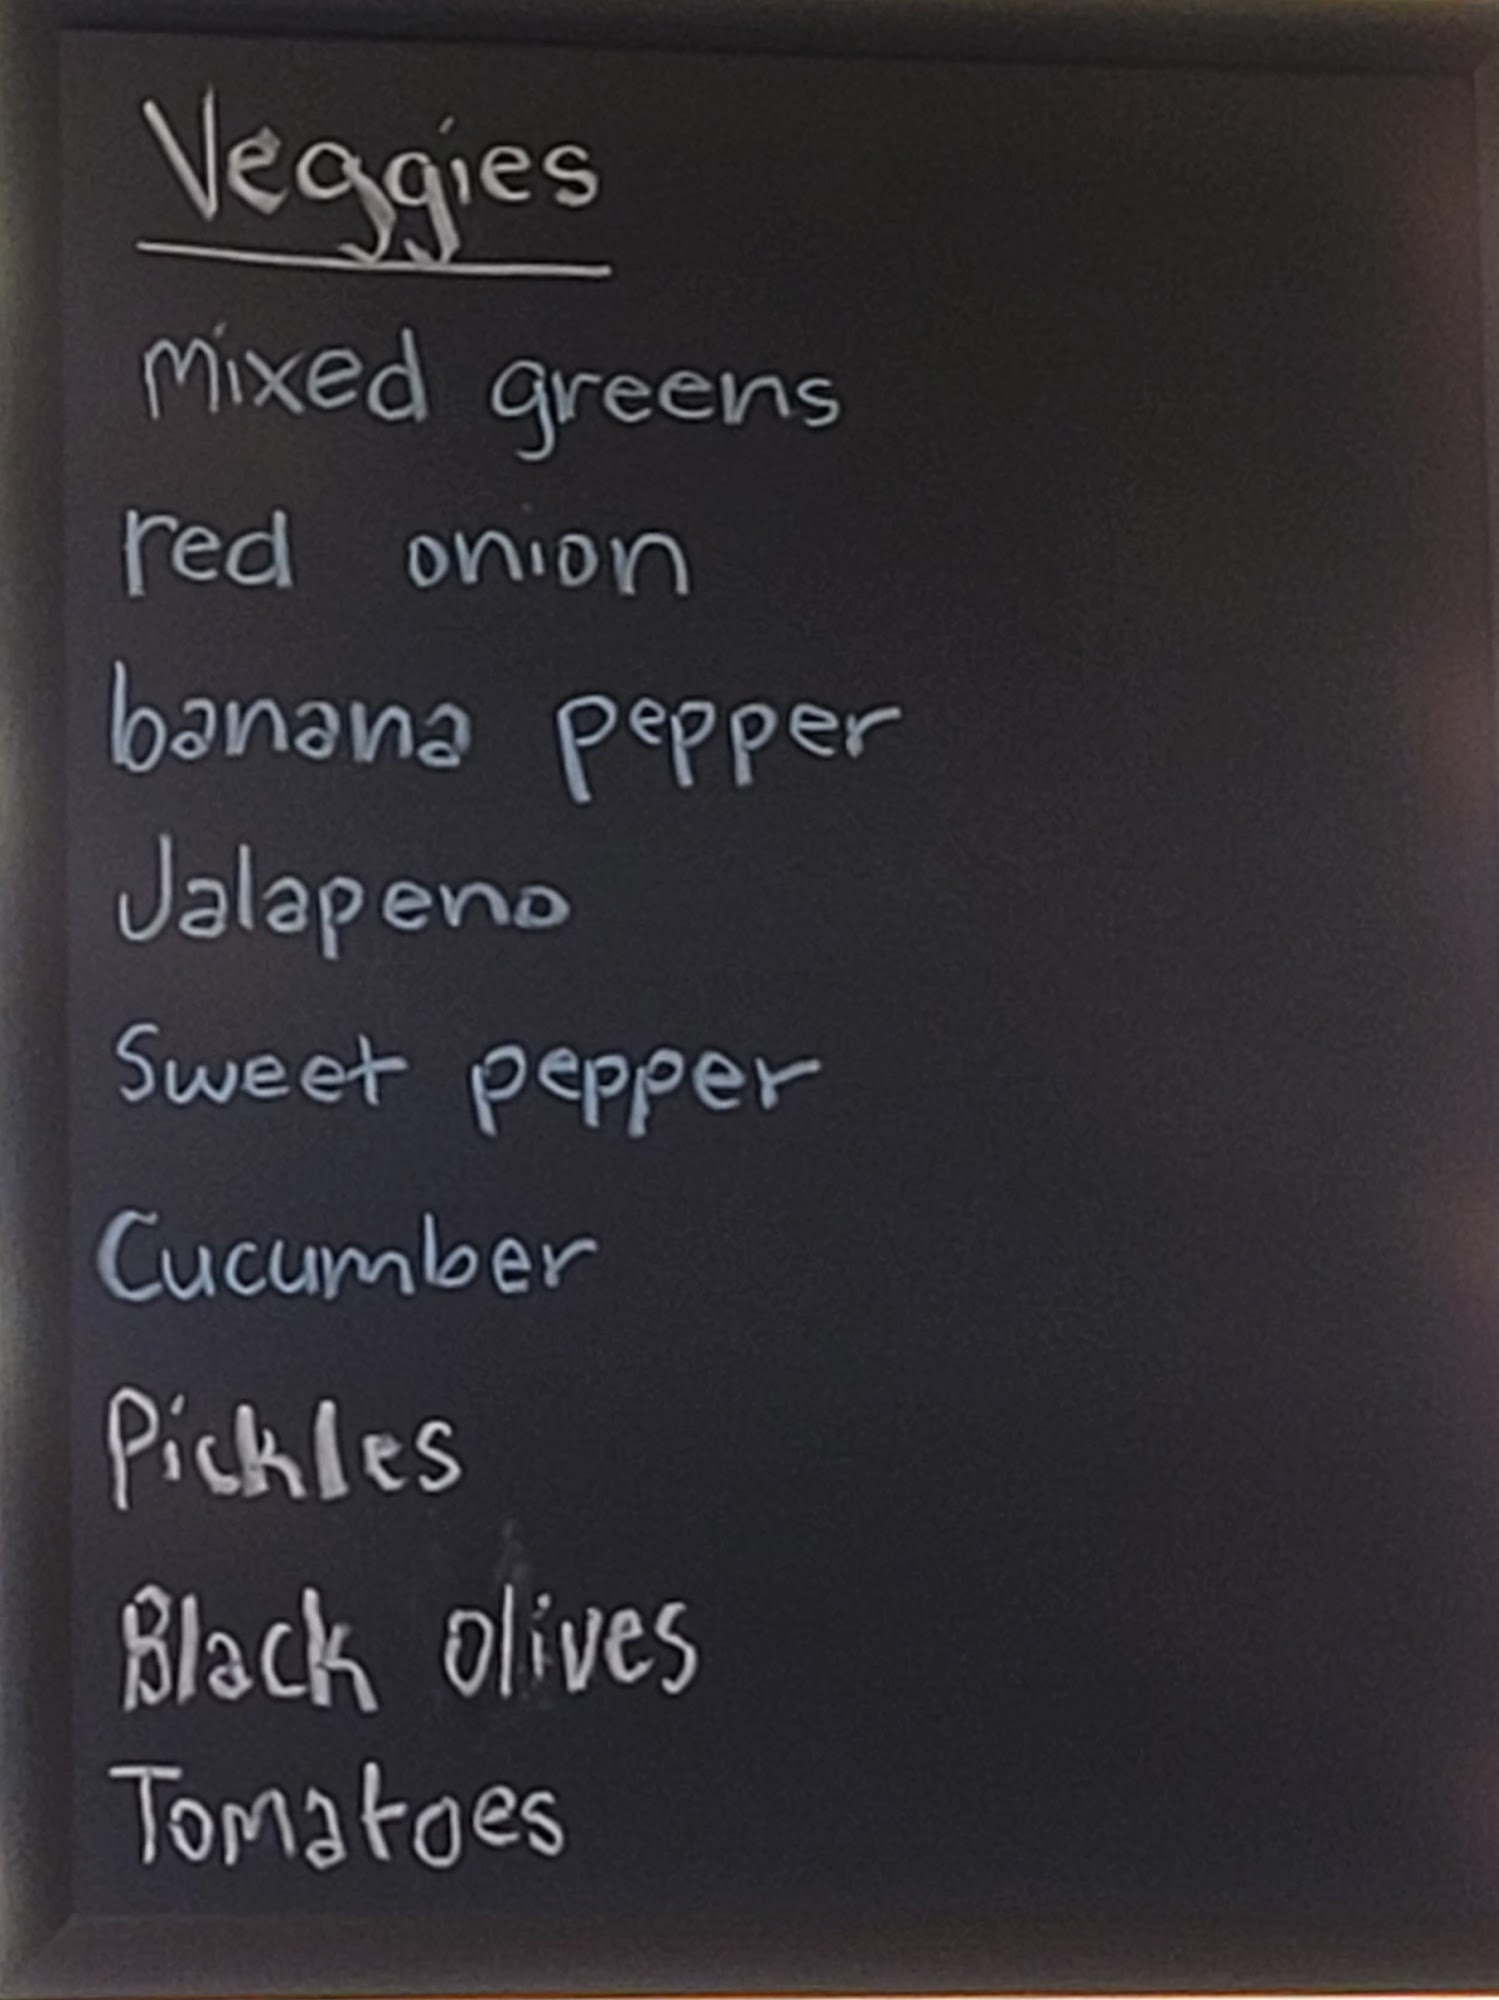 Veggies
mixed greens
red onion
banana pepper
Jalapeno
Sweet pepper
Cucumber
Pickles
Black olives
Tomatoes